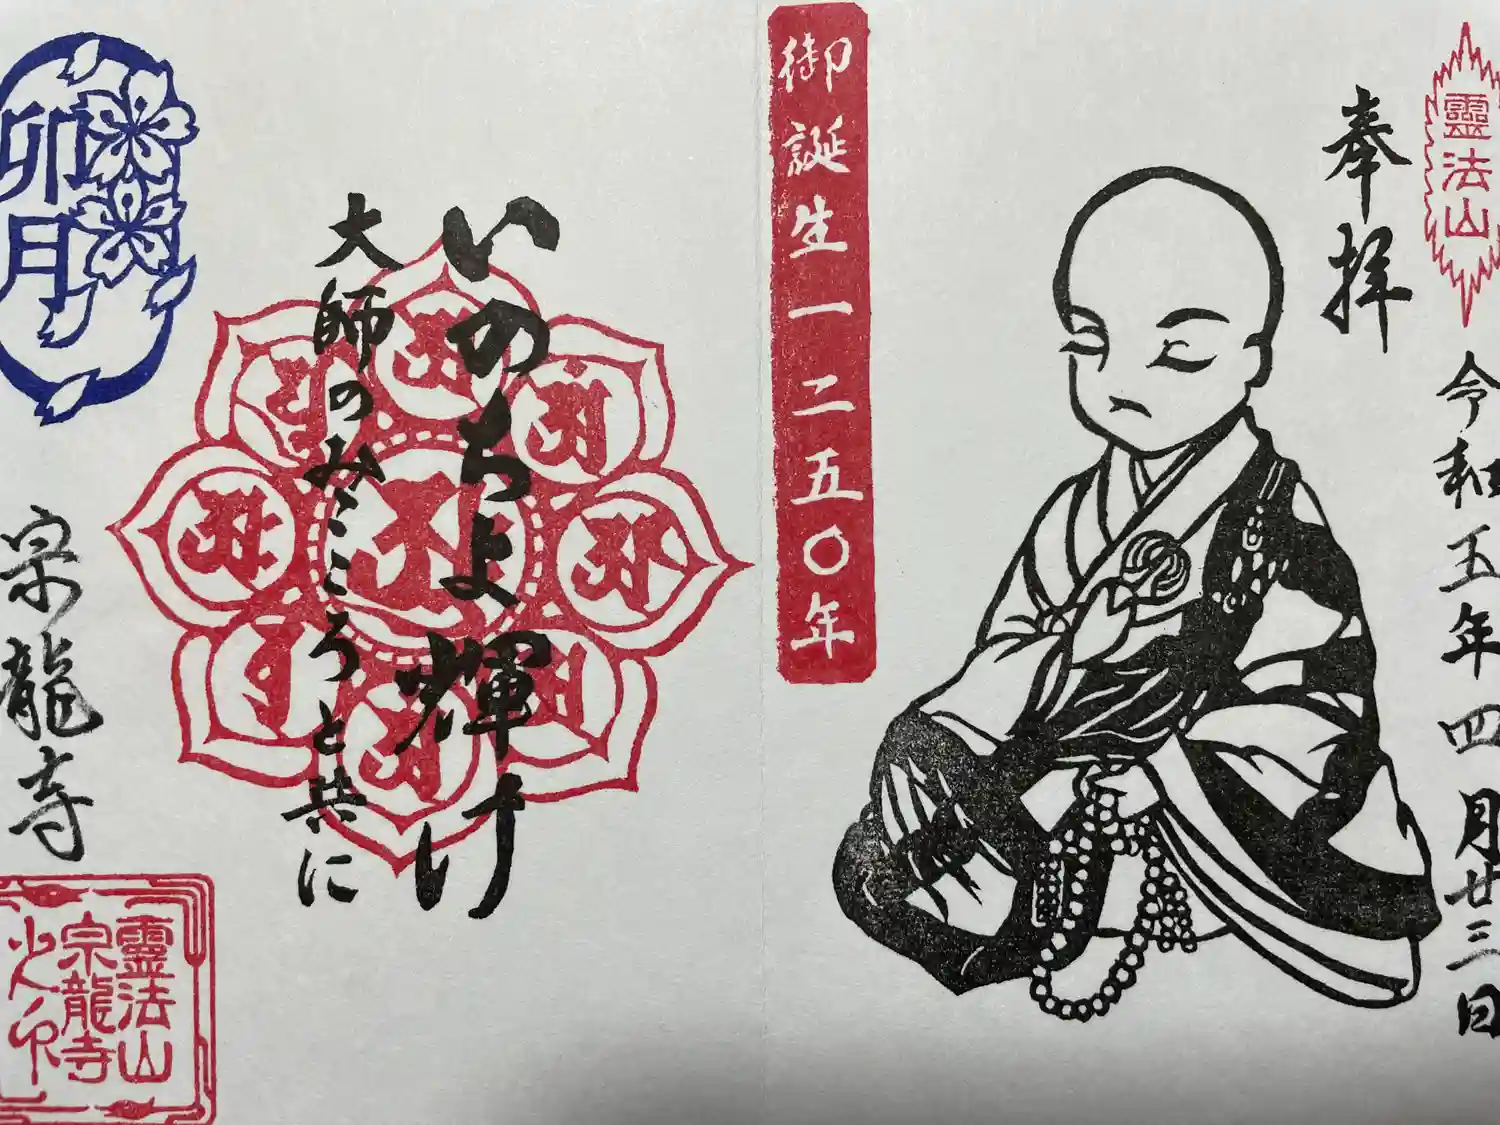 靈法山
奉拝
令和五年四月廿三日
御誕生一二五〇年
いのちよ輝け
大師のみこころと共に
卯月
宗龍寺
靈法山
宗龍寺